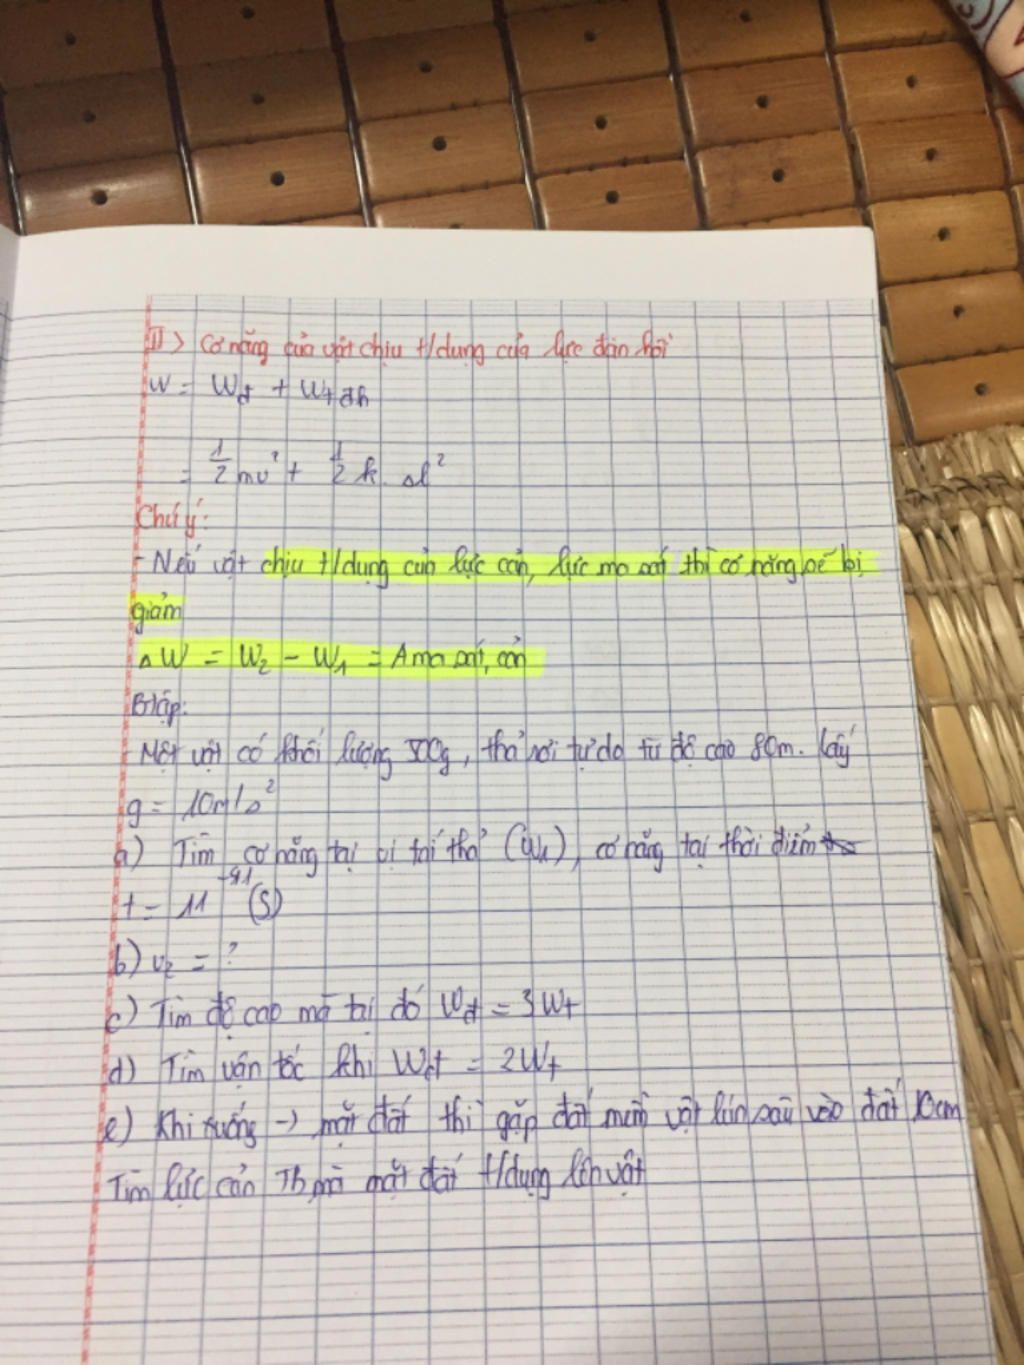 II> Cơ năng của vật chịu t/dụng của lực đàn hồi
W = Wđ + Wtđh
= 1/2 mv² + 1/2 k. Δl²
Chú ý:
- Nếu vật chịu t/dụng của lực cản, lực ma sát thì cơ năng sẽ bị
giảm
ΔW = W₂ - W₁ = A ma sát, cản
B tập:
- Một vật có khối lượng g, thả rơi tự do từ độ cao 80m. Lấy
g = 10m/s²
a) Tìm cơ năng tại vị trí thả (W₁), cơ năng tại thời điểm
t = (s)
b) v₂ = ?
c) Tìm độ cao mà tại đó Wđ = 3Wt
d) Tìm vận tốc khi Wđ = 2Wt
e) Khi xuống -> mặt đất thì gặp đất mềm vật lún sâu vào đất 10cm
Tìm lực cản Tb mà mặt đất t/dụng lên vật